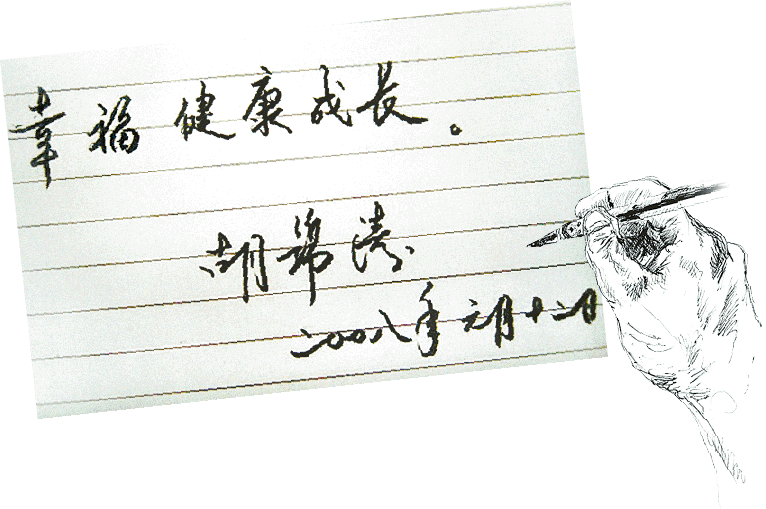 幸福健康成长。
胡锦涛
二〇〇八年元月十二日